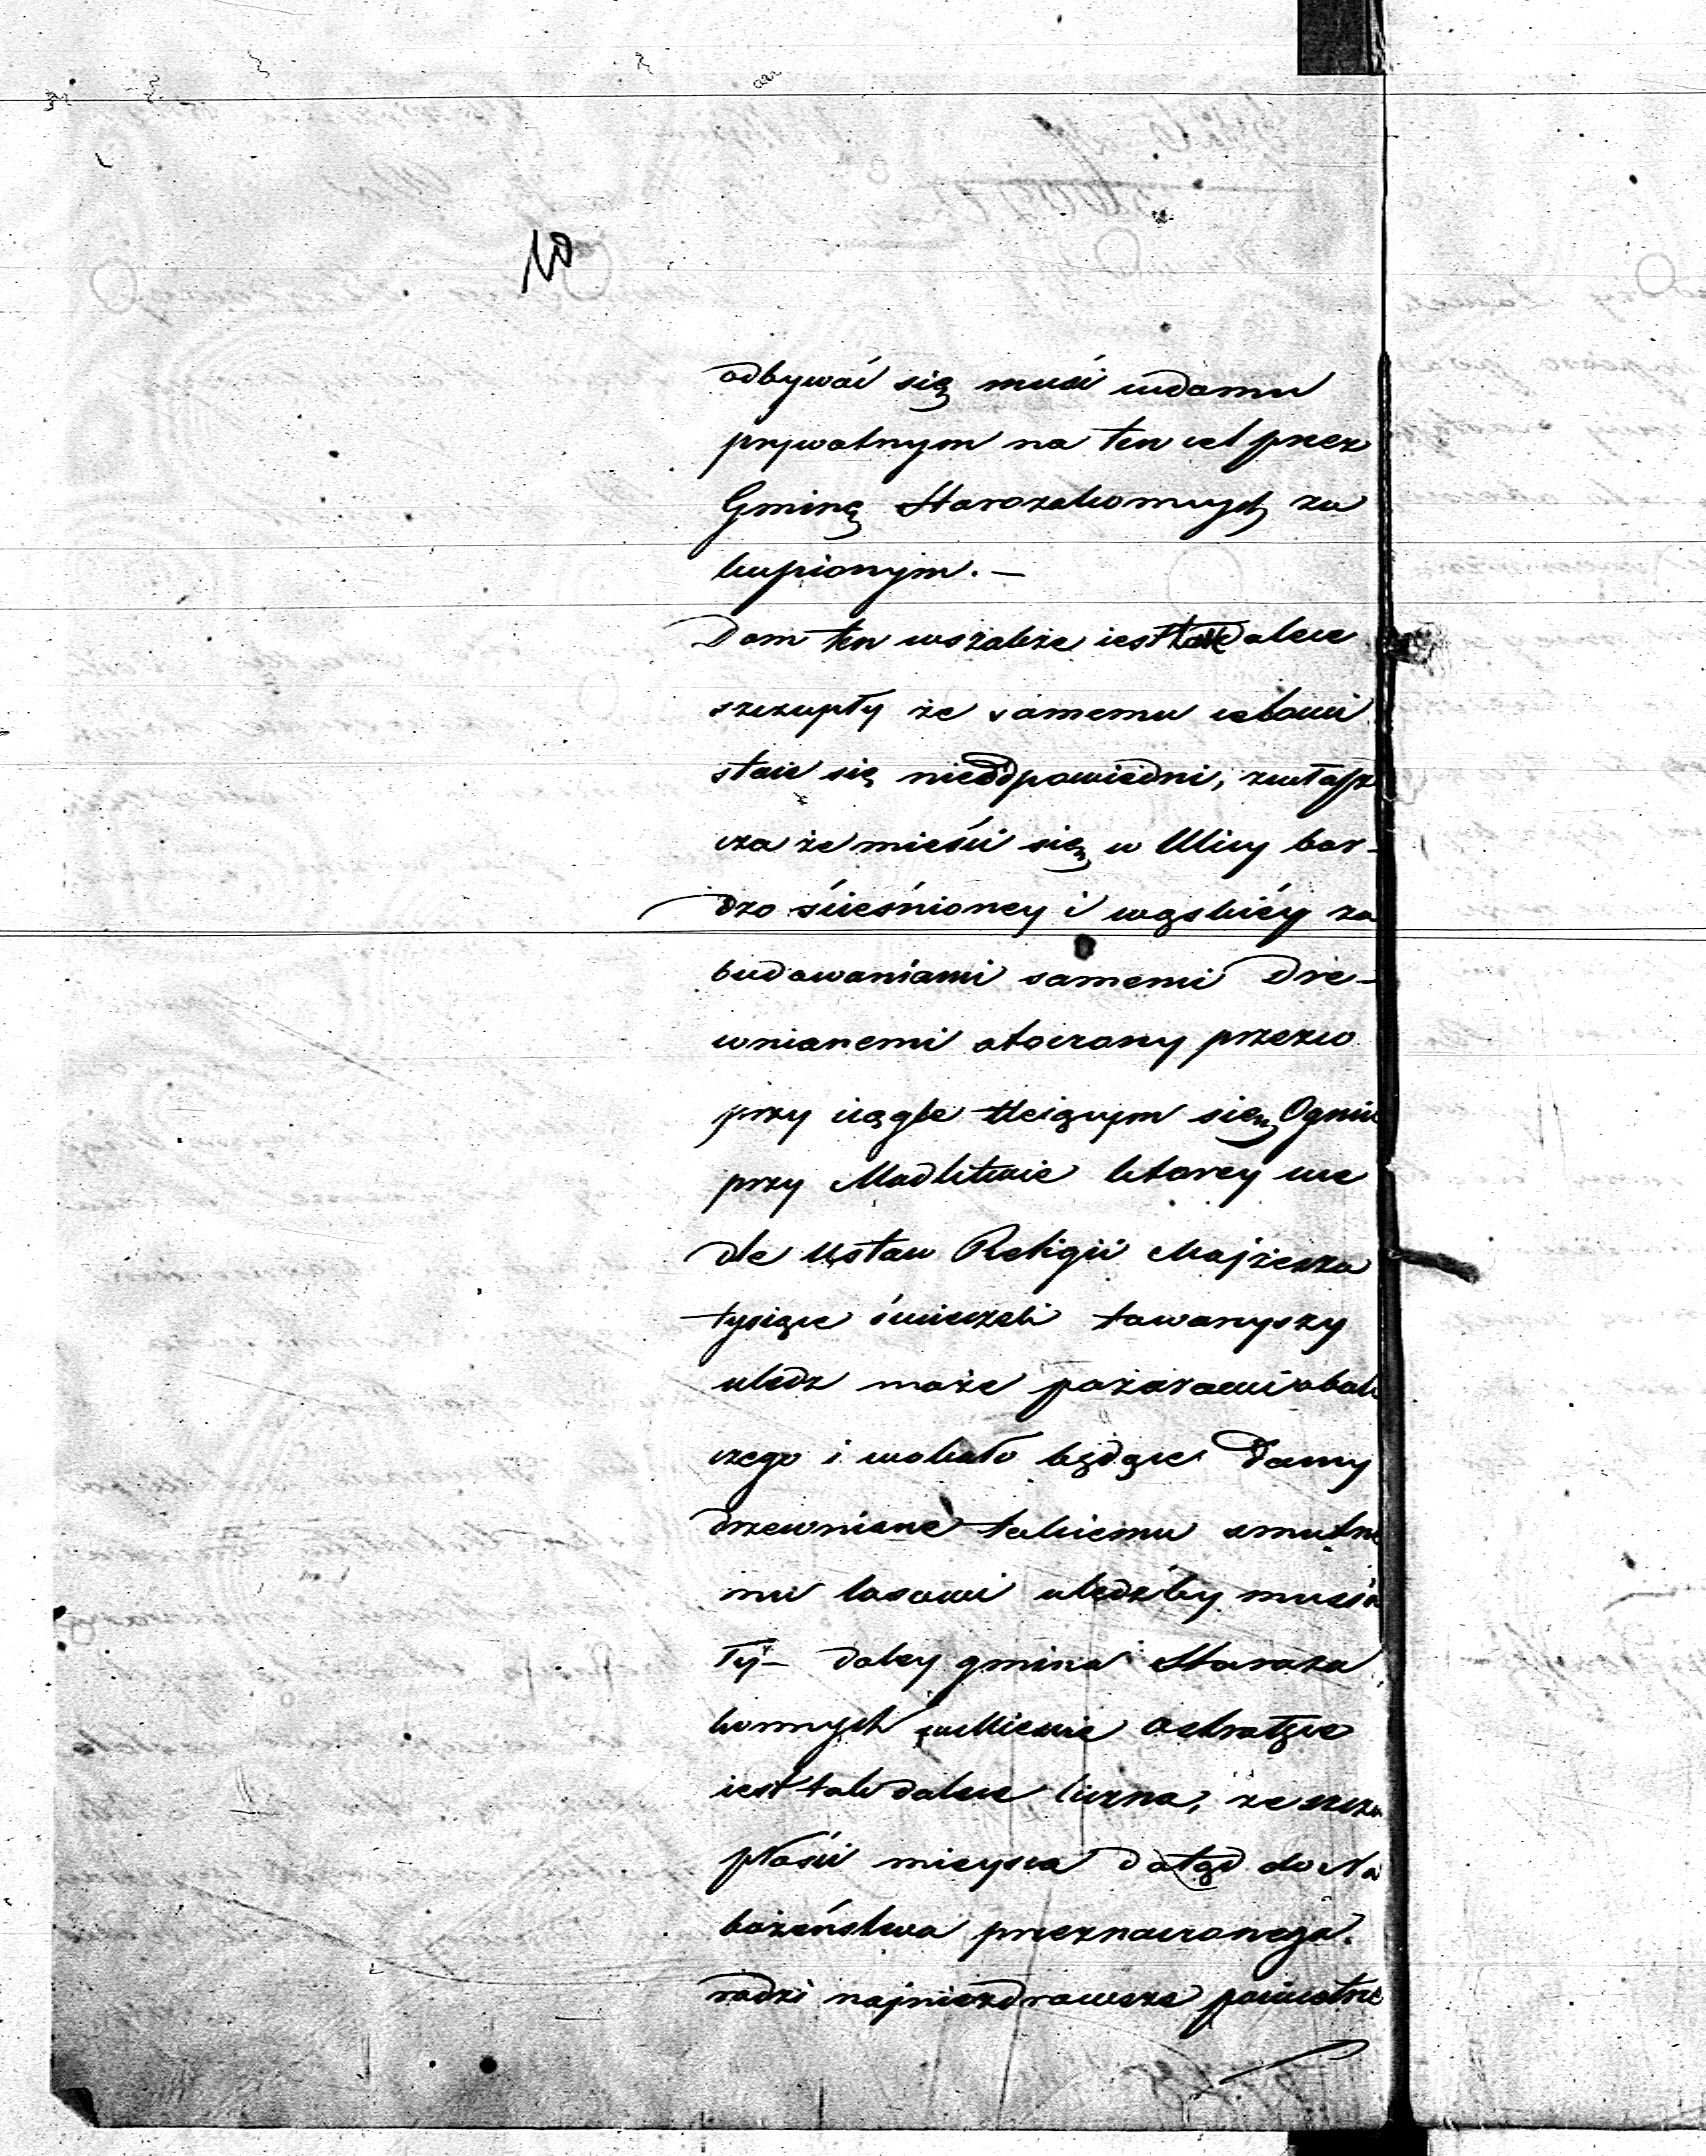 10
odbywać się musi wdomu
prywatnym na ten cel przez
Gminę Starozakonnych za
kupionym. —
Dom ten wszakże iest tak dalece
szczupły że samemu celowi
staie się nieodpowiedni, zwłasz
cza że mieści się w Ulicy bar-
dzo ścieśnioney i wąskiéy za
budowaniami samemi Dre-
wnianemi otoczony przezco
przy ciągle tleiącym się Ogniu
przy Modlitwie którey we
dle Ustaw Religii Mojżesza
tysiące świeczek towarzyszy
uledz może pożarowi obok
czego i wokoło będące Domy
drzewniane takiemu smutne
mu losowi uledźby musia
ły — daley gmina Staroza
konnych wMieście Ostrołęce
iest tak dalece liczna, że szczu
płość mieysca dotąd do Na
bożeństwa przeznaczonego.
rodzi najniezdrowsze powietrze